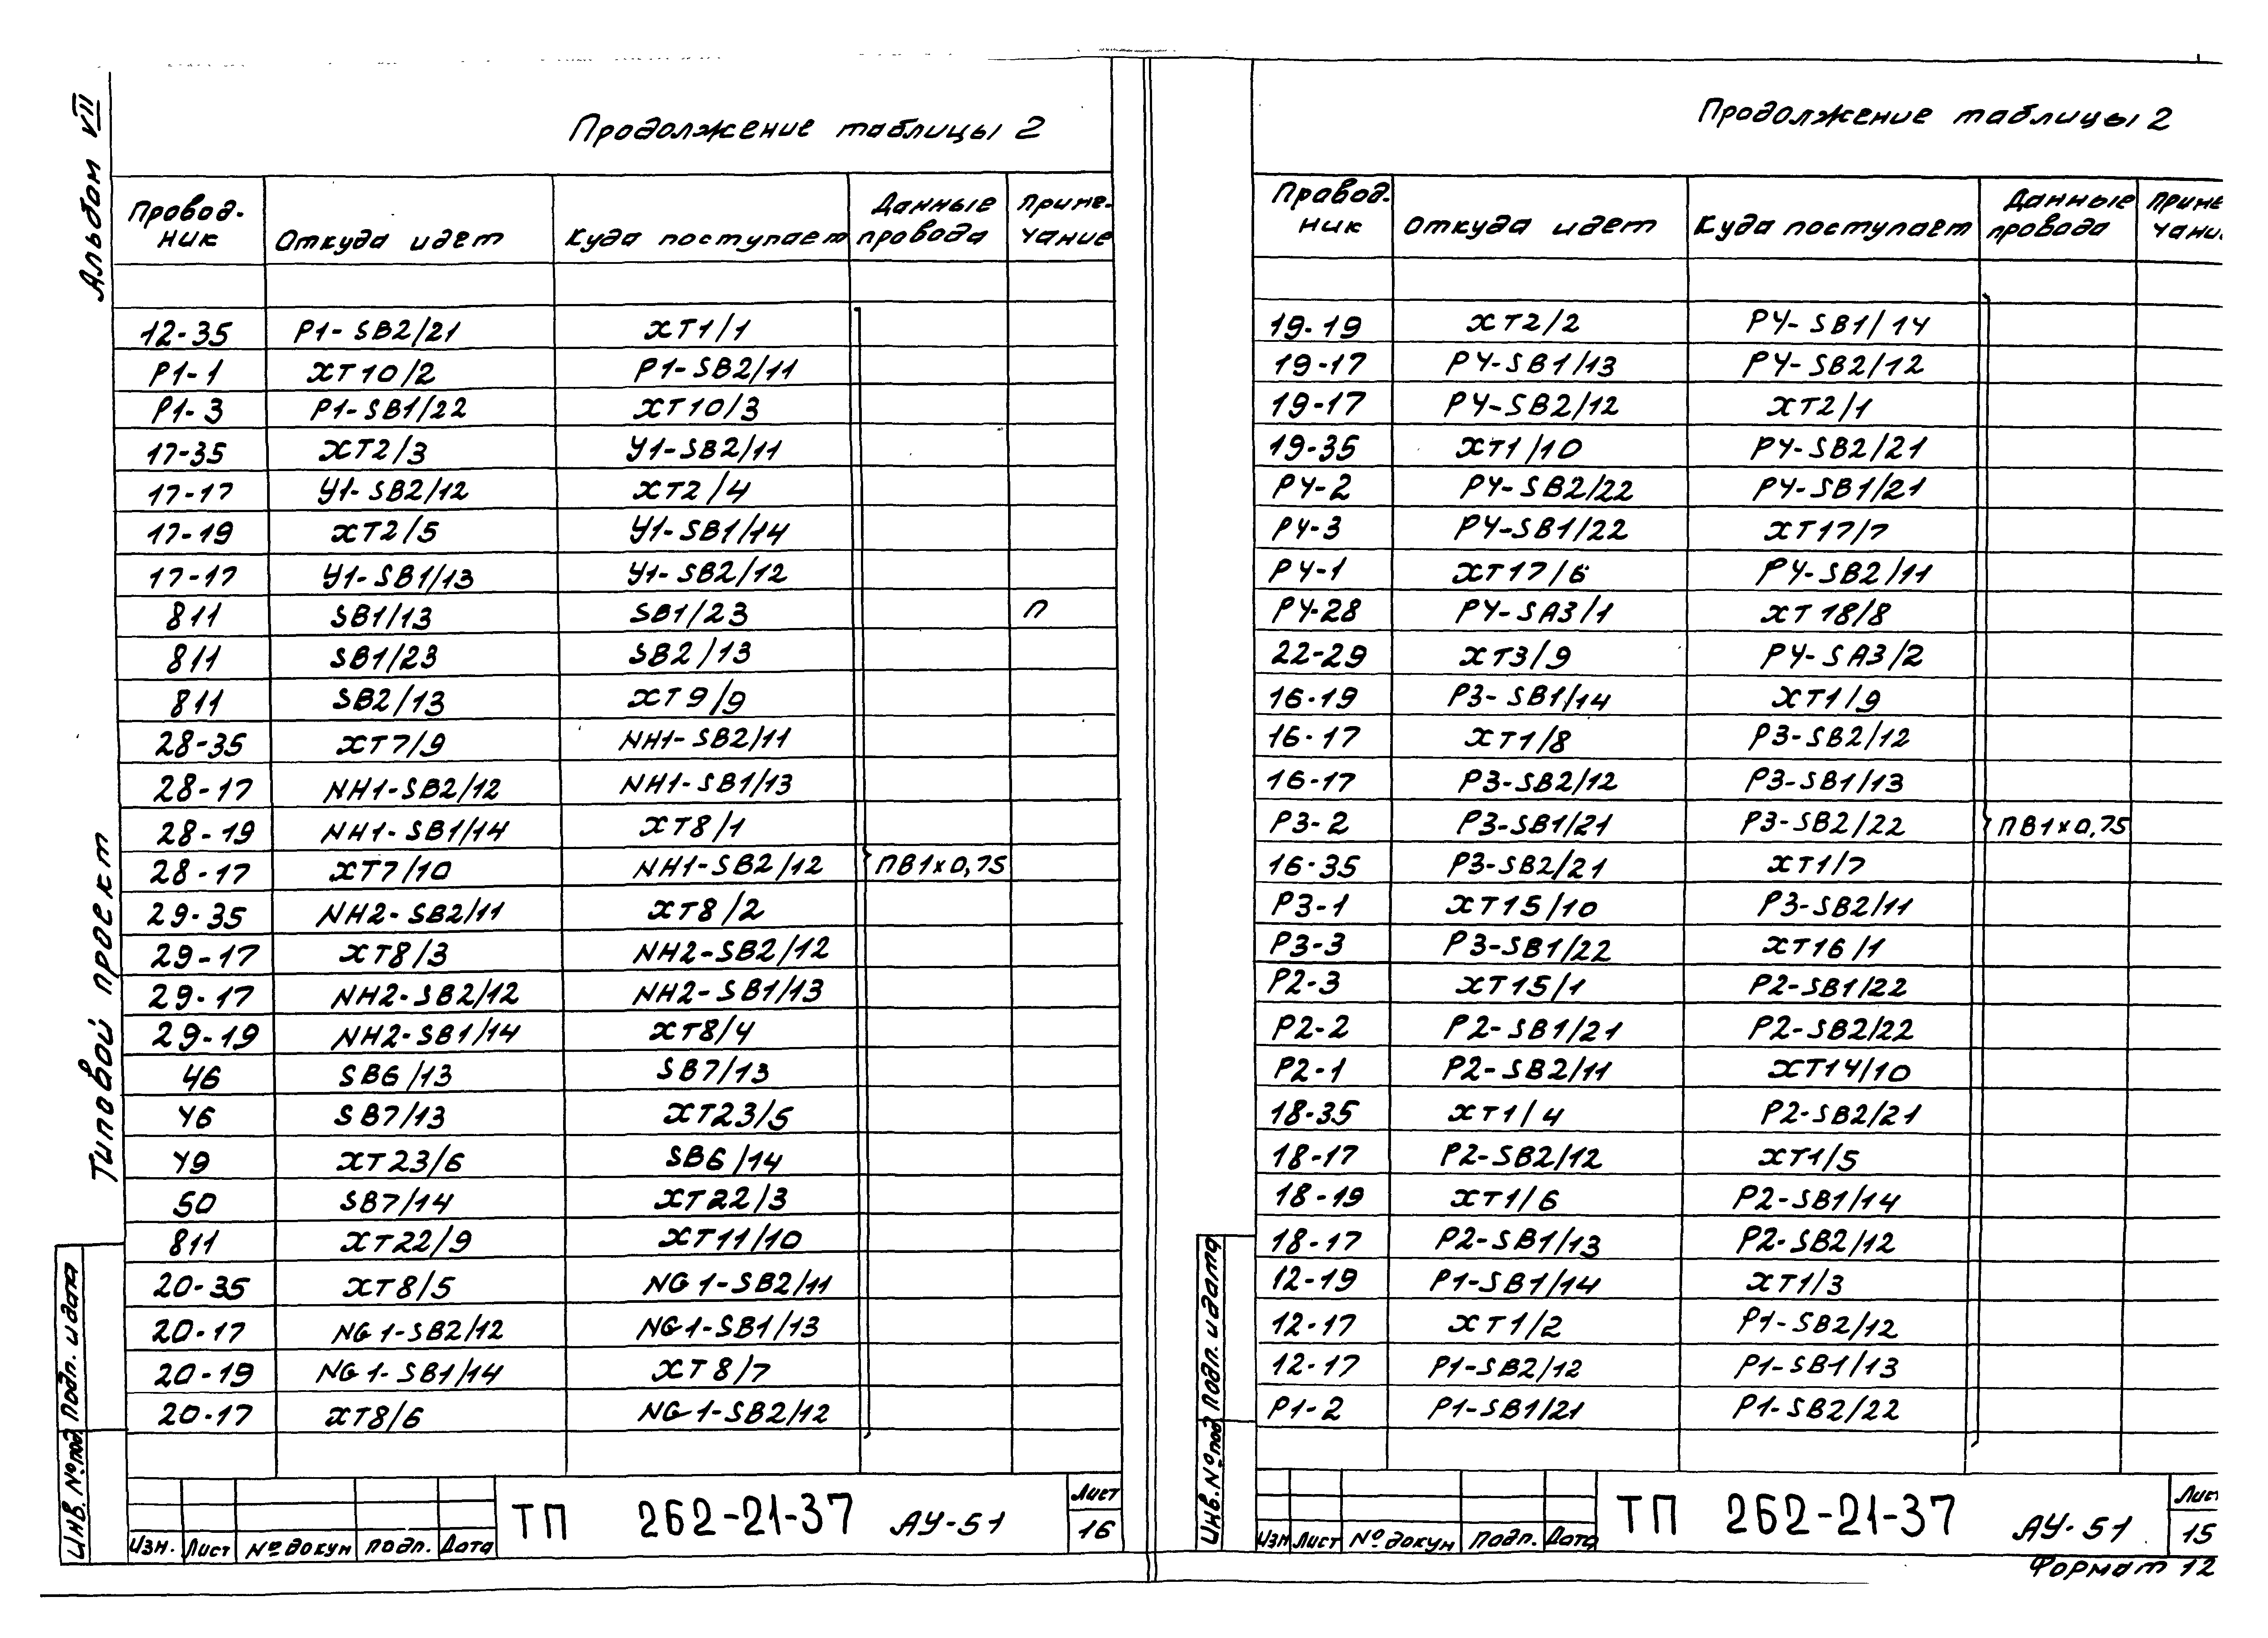 Альбом VII
Типовой проект
Продолжение таблицы 2
Провод. ник | Откуда идет | Куда поступает | Данные провода | Приме- чание
12-35 | Р1-SB2/21 | XT1/1
Р1-1 | XT10/2 | Р1-SB2/11
Р1-3 | Р1-SB1/22 | XT10/3
17-35 | XT2/3 | У1-SB2/11
17-17 | У1-SB2/12 | XT2/4
17-19 | XT2/5 | У1-SB1/14
17-17 | У1-SB1/13 | У1-SB2/12
811 | SB1/13 | SB1/23 | п
811 | SB1/23 | SB2/13
811 | SB2/13 | XT9/9
28-35 | XT7/9 | NH1-SB2/11
28-17 | NH1-SB2/12 | NH1-SB1/13
28-19 | NH1-SB1/14 | XT8/1
28-17 | XT7/10 | NH1-SB2/12 | ПВ1х0,75
29-35 | NH2-SB2/11 | XT8/2
29-17 | XT8/3 | NH2-SB2/12
29-17 | NH2-SB2/12 | NH2-SB1/13
29-19 | NH2-SB1/14 | XT8/4
46 | SB6/13 | SB7/13
46 | SB7/13 | XT23/5
49 | XT23/6 | SB6/14
50 | SB7/14 | XT22/3
811 | XT22/9 | XT11/10
20-35 | XT8/5 | NG1-SB2/11
20-17 | NG1-SB2/12 | NG1-SB1/13
20-19 | NG1-SB1/14 | XT8/7
20-17 | XT8/6 | NG1-SB2/12
Инв. № под. Подп. и дата
Изм. Лист № докум Подп. Дата
ТП 262-21-37 АУ-51
Лист
16
Продолжение таблицы 2
Провод. ник | Откуда идет | Куда поступает | Данные провода | Приме чани
19-19 | XT2/2 | Р4-SB1/14
19-17 | Р4-SB1/13 | Р4-SB2/12
19-17 | Р4-SB2/12 | XT2/1
19-35 | XT1/10 | Р4-SB2/21
Р4-2 | Р4-SB2/22 | Р4-SB1/21
Р4-3 | Р4-SB1/22 | XT17/7
Р4-1 | XT17/6 | Р4-SB2/11
Р4-28 | Р4-SA3/1 | XT18/8
22-29 | XT3/9 | Р4-SA3/2
16-19 | Р3-SB1/14 | XT1/9
16-17 | XT1/8 | Р3-SB2/12
16-17 | Р3-SB2/12 | Р3-SB1/13
Р3-2 | Р3-SB1/21 | Р3-SB2/22 | ПВ1х0,75
16-35 | Р3-SB2/21 | XT1/7
Р3-1 | XT15/10 | Р3-SB2/11
Р3-3 | Р3-SB1/22 | XT16/1
Р2-3 | XT15/1 | Р2-SB1/22
Р2-2 | Р2-SB1/21 | Р2-SB2/22
Р2-1 | Р2-SB2/11 | XT14/10
18-35 | XT1/4 | Р2-SB2/21
18-17 | Р2-SB2/12 | XT1/5
18-19 | XT1/6 | Р2-SB1/14
18-17 | Р2-SB1/13 | Р2-SB2/12
12-19 | Р1-SB1/14 | XT1/3
12-17 | XT1/2 | Р1-SB2/12
12-17 | Р1-SB2/12 | Р1-SB1/13
Р1-2 | Р1-SB1/21 | Р1-SB2/22
Инв. № под Подп. и дата
Изм Лист № докум Подп. Дата
ТП 262-21-37 АУ-51
Лист
15
Формат 12